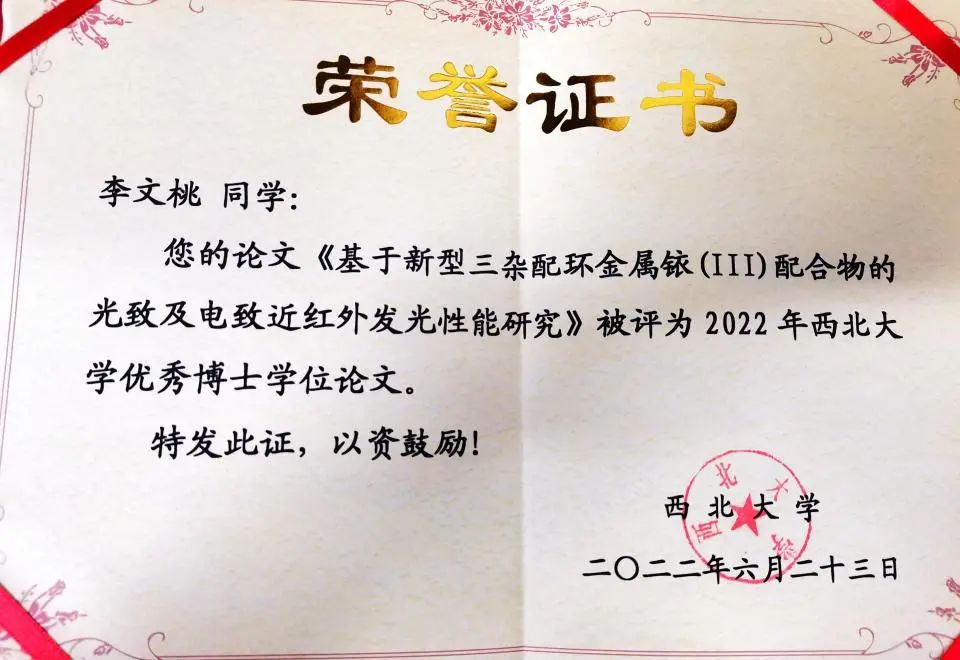 荣誉证书
李文桃 同学：
您的论文《基于新型三杂配环金属铱(III)配合物的
光致及电致近红外发光性能研究》被评为 2022 年西北大
学优秀博士学位论文。
特发此证，以资鼓励！
西北大学
西北大学
二〇二二年六月二十三日